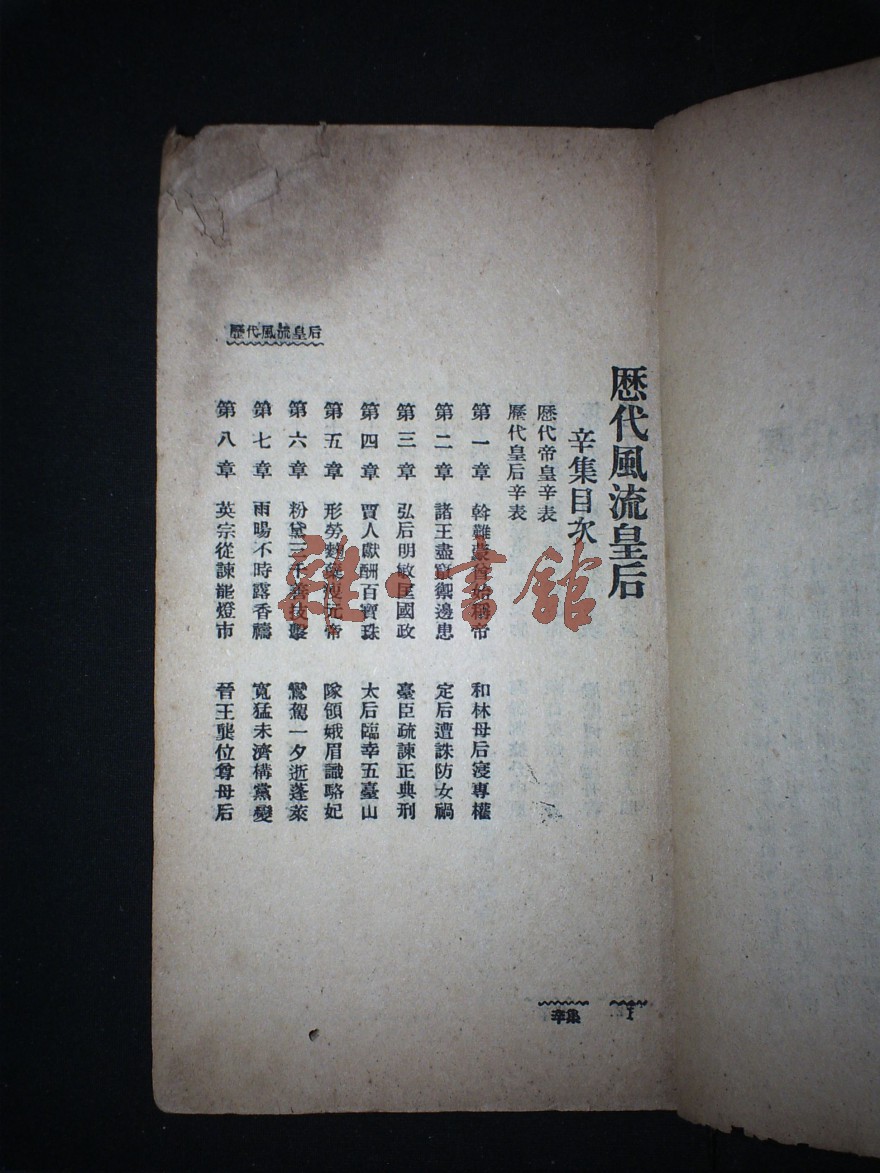 歷代風流皇后
辛集目次
歷代帝皇辛表
歷代皇后辛表
第一章 斡難 始稱帝 和林母后寖專權
第二章 諸王盡竄御邊患 定后遭誅防女禍
第三章 弘后明敏匡國政 臺臣疏諫正典刑
第四章 賈人獻酬百寶珠 太后臨幸五臺山
第五章 形勞 元帝 隊領娥眉識略妃
第六章 粉黛三千善技擊 鸞駕一夕逝蓬萊
第七章 雨暘不時露香禱 寬猛未濟構黨變
第八章 英宗從諫罷燈市 晉王襲位尊母后
歷代風流皇后
辛集
雜·書館